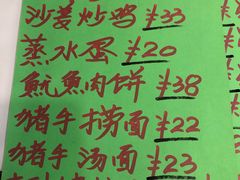 沙姜炒鸡 ¥33
蒸水蛋 ¥20
魷魚肉饼 ¥38
猪手捞面 ¥22
猪手汤面 ¥23